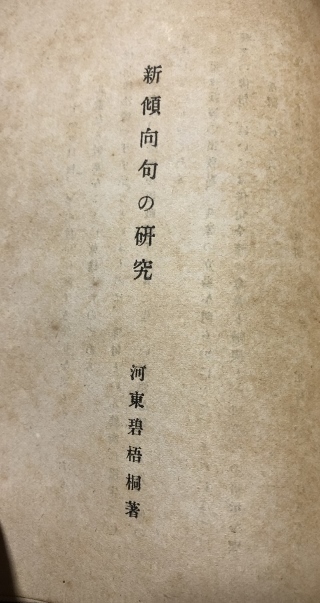 新傾向句の研究
河東碧梧桐著